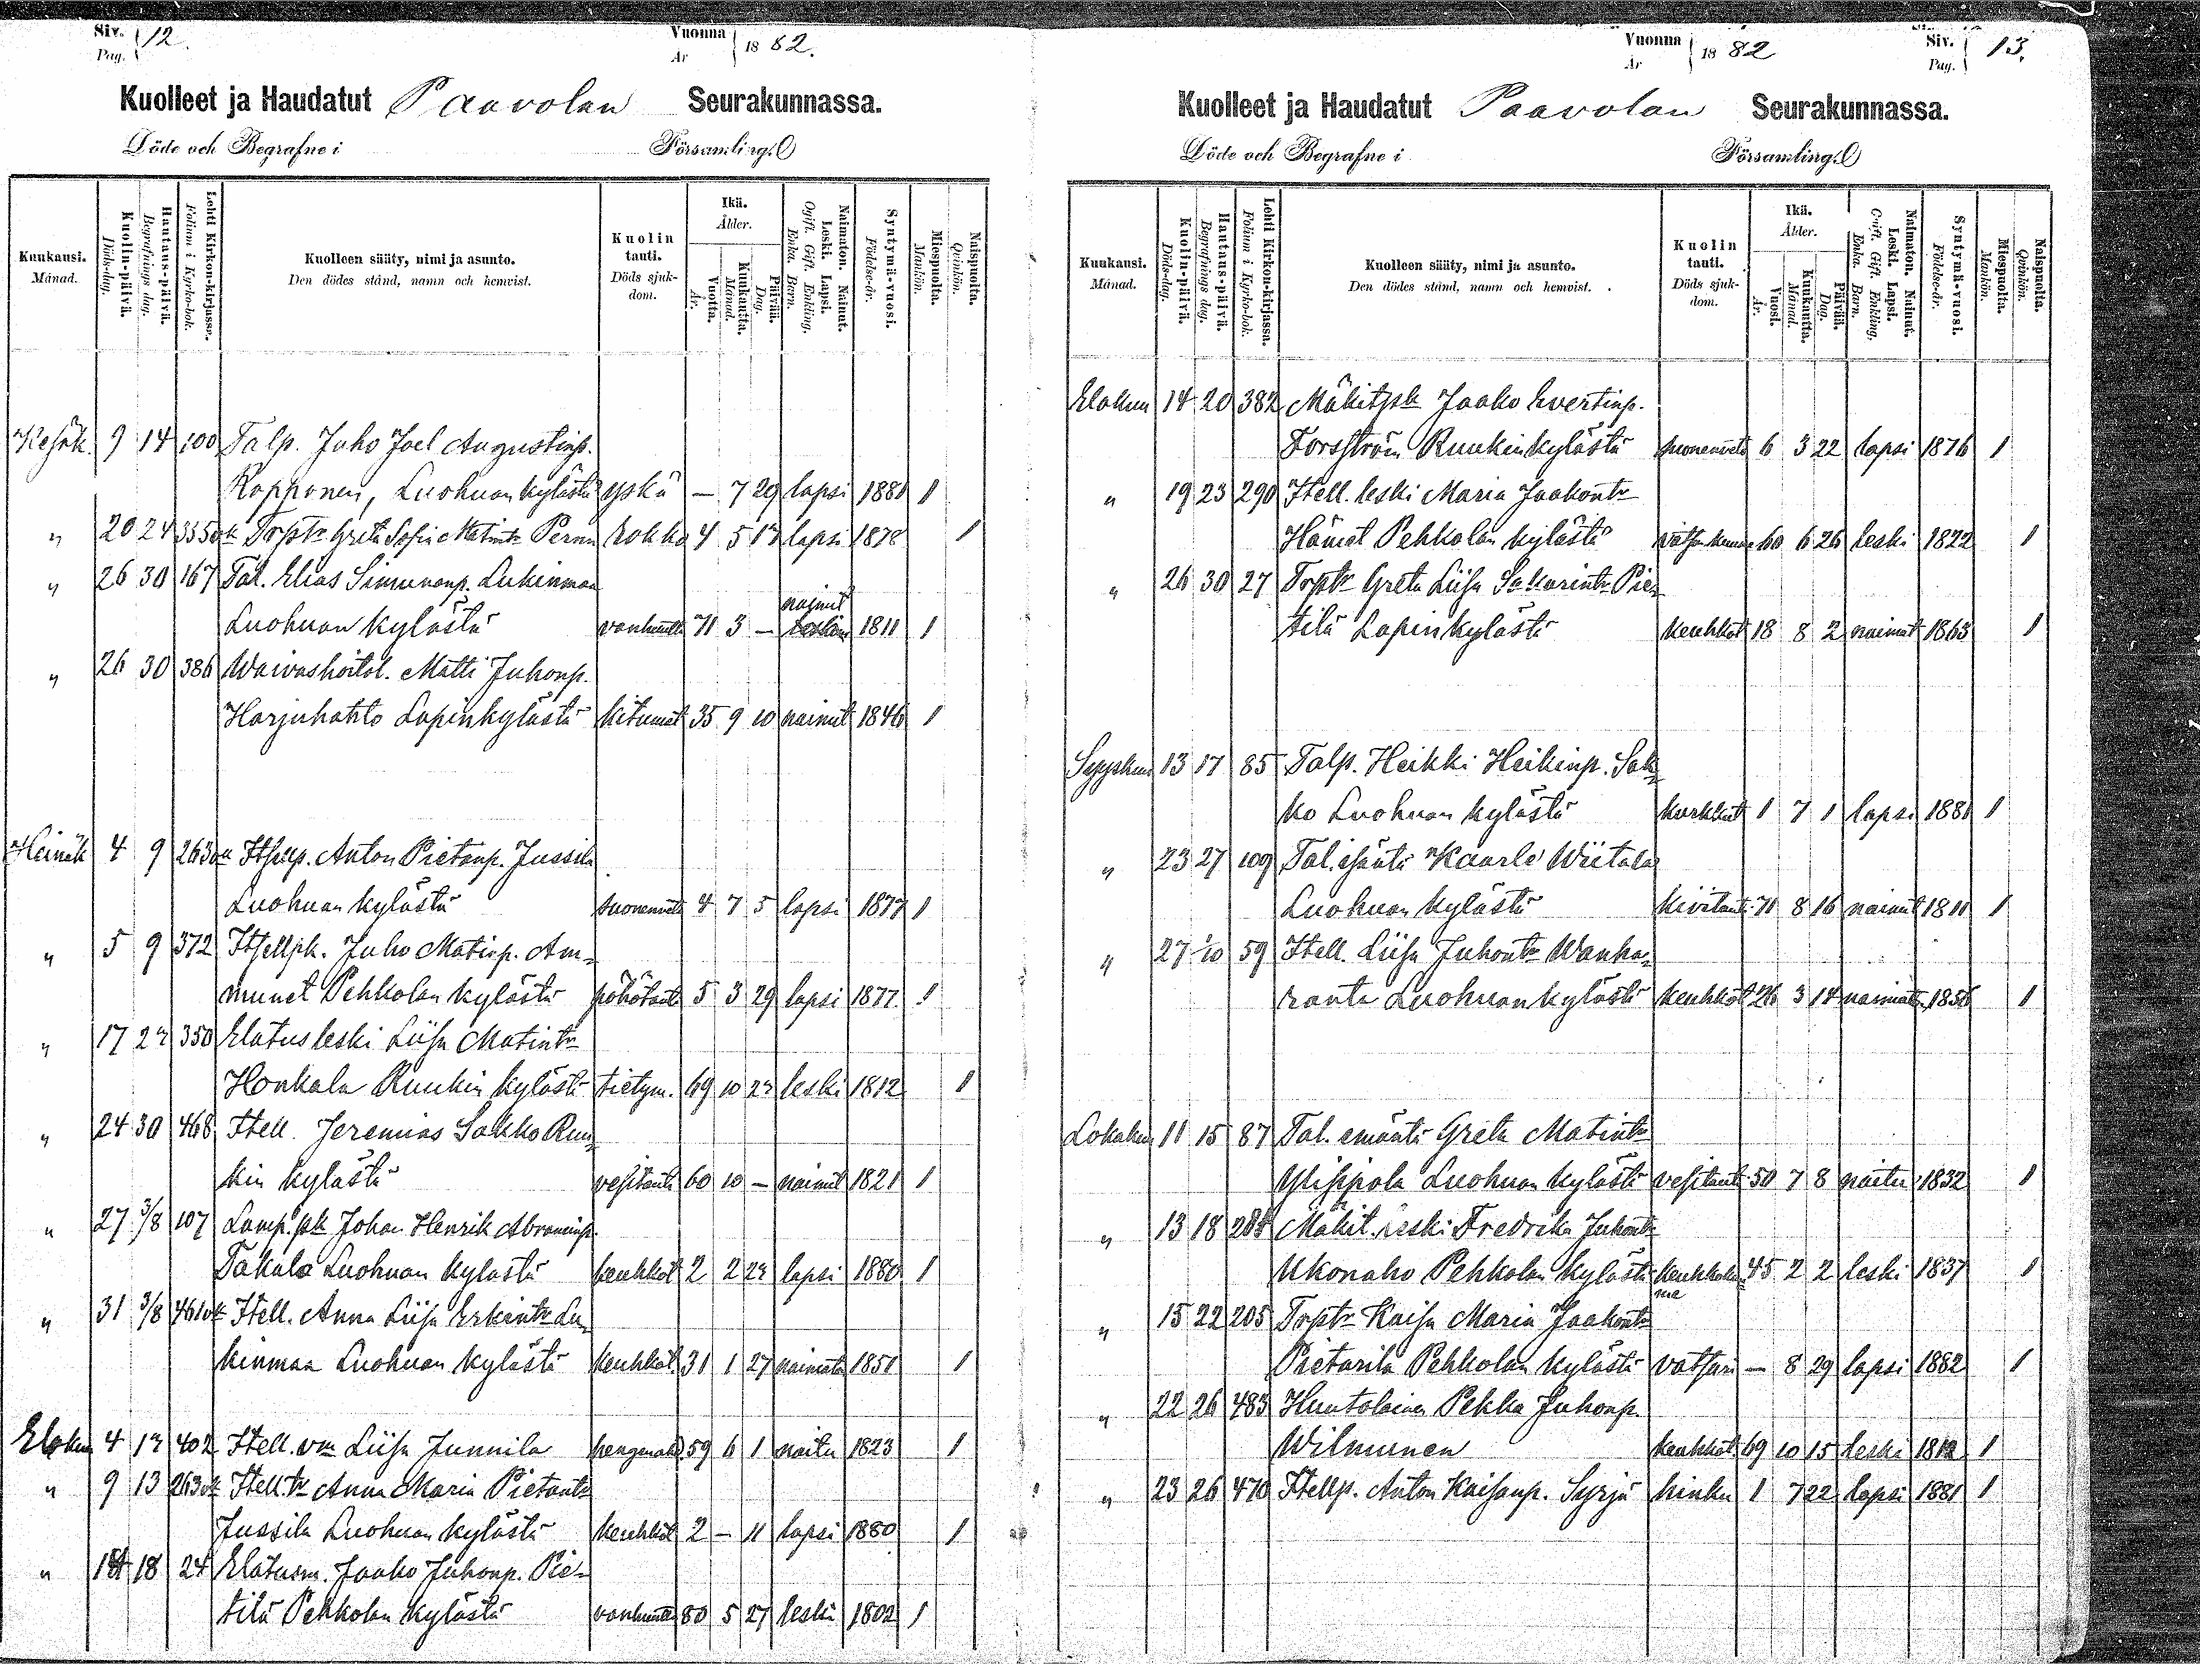 Siv. 12.
Pag.
Vuonna 1882.
År
Kuolleet ja Haudatut Paavolan Seurakunnassa.
Döde och Begrafne i Församling.
Kuukausi.
Månad.
Kuolin-päivä.
Döds-dag.
Hautaus-päivä.
Begrafnings dag.
Lehti Kirkon-kirjassa.
Folium i Kyrko-bok.
Kuolleen sääty, nimi ja asunto.
Den dödes stånd, namn och hemvist.
Kuolin tauti.
Döds sjukdom.
Ikä.
Ålder.
Vuotta.
År.
Kuukautta.
Månad.
Päivää.
Dag.
Naimaton. Nainut.
Leski. Lapsi.
Ogift. Gift. Enkling.
Enka. Barn.
Syntymä-vuosi.
Födelse-år.
Miespuolta.
Mankön.
Naispuolta.
Qvinkön.
Kesäk. 9 14 100 Talp. Juho Joel Augustinp.
Kopponen, Luohuan kylästä yskä — 7 29 lapsi 1881 1
" 20 24 335 Torptr Greta Sofia Matintr Pernu rokko 4 5 13 lapsi 1878 1
" 26 30 167 Tal. Elias Simunanp. Lukinmaa
Luohuan kylästä vanhuutta 71 3 — nainut 1811 1
" 26 30 386 Waivashoital. Matti Juhonp.
Harjuhahto Lapinkylästä kitumat. 35 9 10 nainut 1846 1
Heinäk 4 9 263 Itsellp. Anton Pietarip. Jussila
Luohuan kylästä suonenveto 4 7 5 lapsi 1877 1
" 5 9 372 Itsellpk. Juho Matinp. Am-
munet Pehkolan kylästä pöhötauti 5 3 29 lapsi 1877 1
" 17 23 350 Elatusleski Liisa Matintr
Honkala Ruukin kylästä tietym. 69 10 23 leski 1812 1
" 24 30 468 Itell. Jeremias Sakko Ruu-
kin kylästä vesitauti 60 10 — nainut 1821 1
" 27 3/8 107 Lamp.pk Johan Henrik Abraminp.
Takala Luohuan kylästä keuhkot. 2 2 23 lapsi 1880 1
" 31 3/8 461 Itell. Anna Liisa Erkintr Lu-
kinmaa Luohuan kylästä keuhkot. 31 1 27 naimatn 1851 1
Elokuu 4 13 402 Itell. vm Liisa Junnila hengenahd. 59 6 1 naitu 1823 1
" 9 13 263 Itell.tr Anna Maria Pietarintr
Jussila Luohuan kylästä keuhkot 2 — 11 lapsi 1880 1
" 14 18 24 Elatusm. Jaako Juhonp. Pie-
tilä Pehkolan kylästä vanhuutta 80 5 27 leski 1802 1
Vuonna 1882
År
Siv. 13.
Pag.
Kuolleet ja Haudatut Paavolan Seurakunnassa.
Döde och Begrafne i Församling.
Kuukausi.
Månad.
Kuolin-päivä.
Döds-dag.
Hautaus-päivä.
Begrafnings dag.
Lehti Kirkon-kirjassa.
Folium i Kyrko-bok.
Kuolleen sääty, nimi ja asunto.
Den dödes stånd, namn och hemvist.
Kuolin tauti.
Döds sjukdom.
Ikä.
Ålder.
Vuosi.
År.
Kuukautta.
Månad.
Päivää.
Dag.
Naimaton. Nainut.
Leski. Lapsi.
Ogift. Gift. Enkling.
Enka. Barn.
Syntymä-vuosi.
Födelse-år.
Miespuolta.
Mankön.
Naispuolta.
Qvinkön.
Elokuu 14 20 382 Mäkitpk Jaako Evertinp.
Forsström Ruukinkylästä suonenveto 6 3 22 lapsi 1876 1
" 19 23 290 Itell. leski Maria Jaakontr
Hämet Pehkolan kylästä 60 6 26 leski 1822 1
" 26 30 27 Torptr Greta Liisa Sakarintr Pie-
tilä Lapinkylästä keuhkot 18 8 2 naimat 1863 1
Syyskuu 13 17 85 Talp. Heikki Heikinp. Sak-
ko Luohuan kylästä kurkkut 1 7 1 lapsi 1881 1
" 23 27 109 Tal. isäntä Kaarle Wiitala
Luohuan kylästä kivitauti 71 8 16 nainut 1811 1
" 27 1/10 59 Itell. Liisa Juhontr Wanha-
ranta Luohuan kylästä keuhkot 26 3 14 naimatn 1856 1
Lokakuu 11 15 87 Tal. emäntä Greta Matintr
Ylisipola Luohuan kylästä vesitauti 50 7 8 naitu 1832 1
" 13 18 288 Mäkit. leski Fredrika Juhontr
Ukonaho Pehkolan kylästä 45 2 2 leski 1837 1
" 15 22 205 Torptr Kaisa Maria Jaakontr
Pietarila Pehkolan kylästä vatsan — 8 29 lapsi 1882 1
" 22 26 483 Huutolainen Pekka Juhonp.
Wilmunen keuhkot. 69 10 15 leski 1812 1
" 23 26 470 Itellp. Anton Kaisanp. Syrjä hinku 1 7 22 lapsi 1881 1